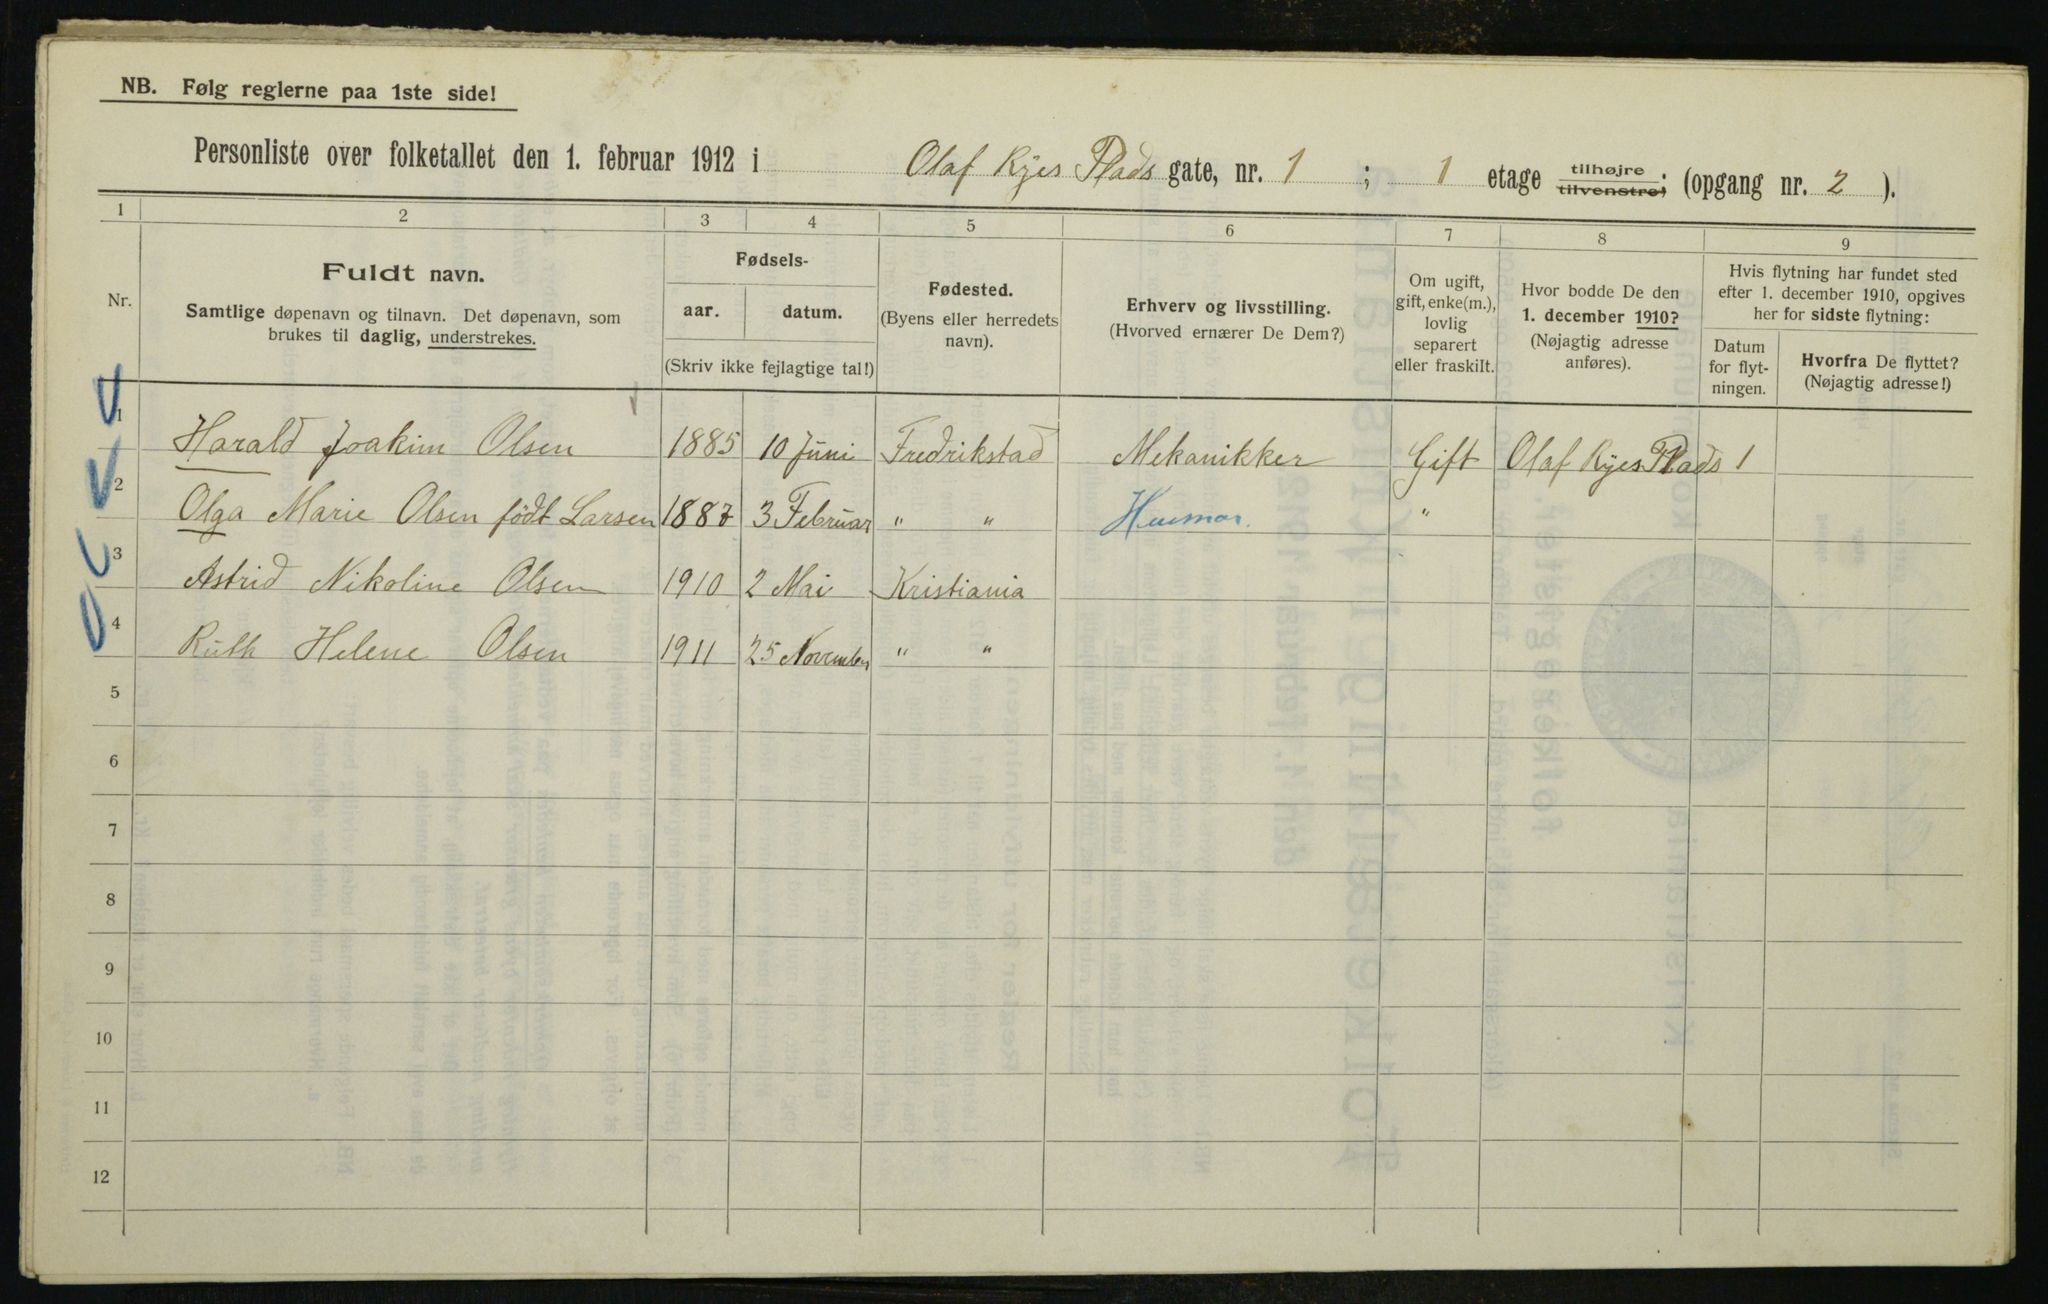 NB. Følg reglerne paa 1ste side!
Personliste over folketallet den 1. februar 1912 i Olaf Ryes Plads gate, nr. 1 ; 1 etage tilhøjre. tilvenstre; (opgang nr. 2 ).
1 2 3 4 5 6 7 8 9
Nr.
Fuldt navn.
Samtlige døpenavn og tilnavn. Det døpenavn, som
brukes til daglig, understrekes.
Fødsels-
aar. datum.
(Skriv ikke fejlagtige tal!)
Fødested.
(Byens eller herredets
navn).
Erhverv og livsstilling.
(Hvorved ernærer De Dem?)
Om ugift,
gift, enke(m.),
lovlig
separert
eller fraskilt.
Hvor bodde De den
1. december 1910?
(Nøjagtig adresse
anføres).
Hvis flytning har fundet sted
efter 1. december 1910, opgives
her for sidste flytning:
Datum
for flyt-
ningen.
Hvorfra De flyttet?
(Nøjagtig adresse!)
1 Harald Joakim Olsen 1885 10 Juni Fredrikstad Mekanikker Gift Olaf Ryes Plads 1
2 Olga Marie Olsen födt Larsen 1887 3 Februar " " Husmor. "
3 Astrid Nikoline Olsen 1910 2 Mai Kristiania
4 Ruth Helene Olsen 1911 25 November " "
5
6
7
8
9
10
11
12